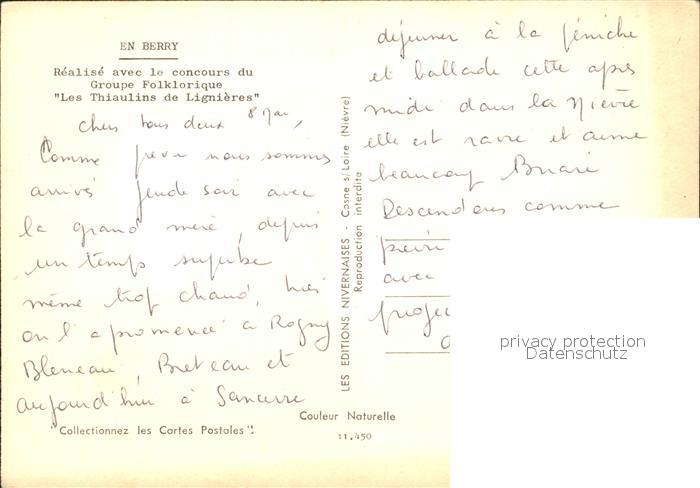 EN BERRY
Réalisé avec le concours du
Groupe Folklorique
"Les Thiaulins de Lignières"
8 Mai
Chers tous deux,
Comme prévu nous sommes
arrivés jeudi soir avec
la grand mère, depuis
un temps superbe
même trop chaud, hier
on l'a promenée à Rogny
Bleneau, Breteau et
aujourd'hui à Sancerre
"Collectionnez les Cartes Postales"!
Couleur Naturelle
11.450
LES EDITIONS NIVERNAISES - Cosne s/Loire (Nièvre)
Reproduction interdite
déjeuner à la péniche
et ballade cette après
midi dans la Nièvre
elle est ravie et aime
beaucoup Briare
Descendons comme
prévu
avec
privacy protection
Datenschutz